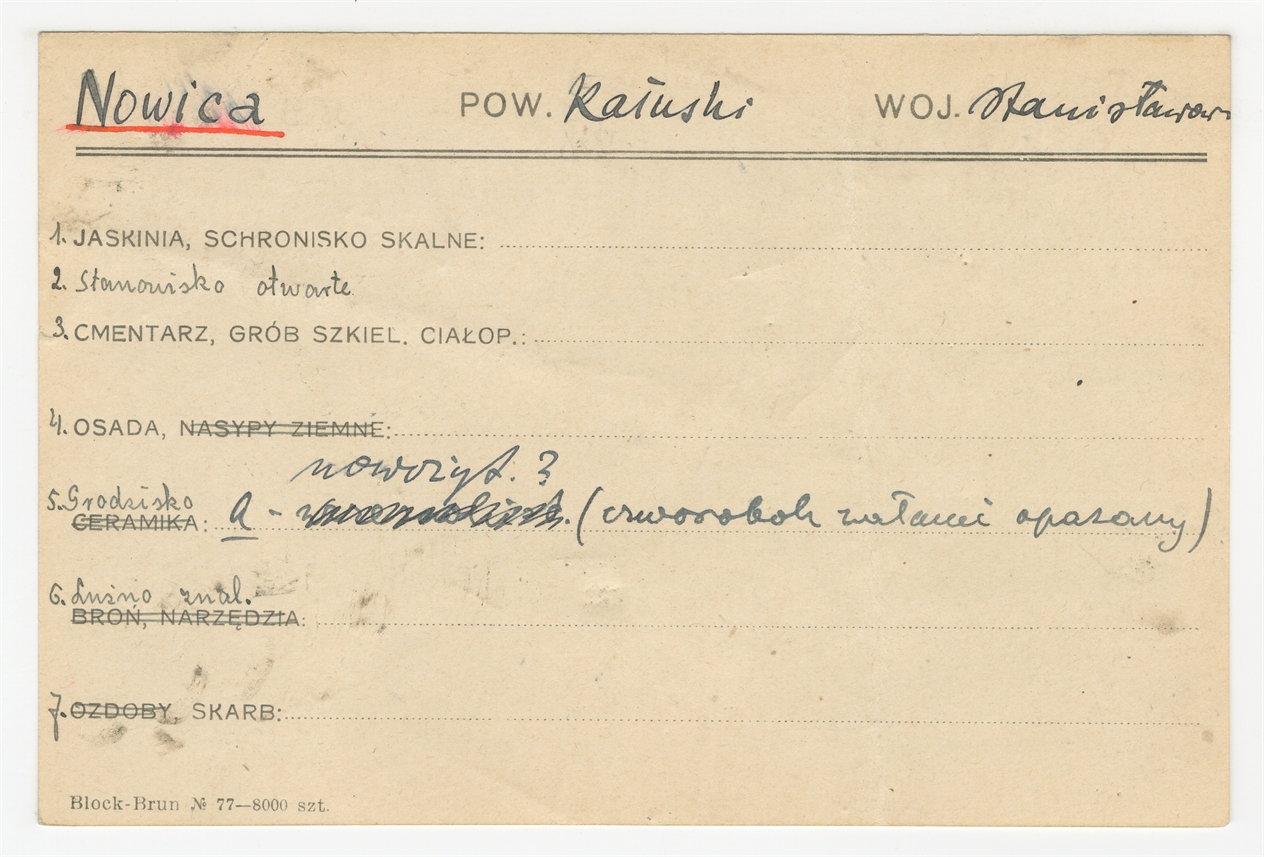 Nowica POW. Kałuski WOJ. Stanisławow
1. JASKINIA, SCHRONISKO SKALNE:
2. Stanowisko otwarte
3. CMENTARZ, GRÓB SZKIEL. CIAŁOP.:
4. OSADA, NASYPY ZIEMNE:
nowożyt. ?
5. Grodzisko
CERAMIKA: a - (czworobok wałami opasany)
6. Luźno znal.
BROŃ, NARZĘDZIA:
7. OZDOBY, SKARB:
Block-Brun № 77—8000 szt.